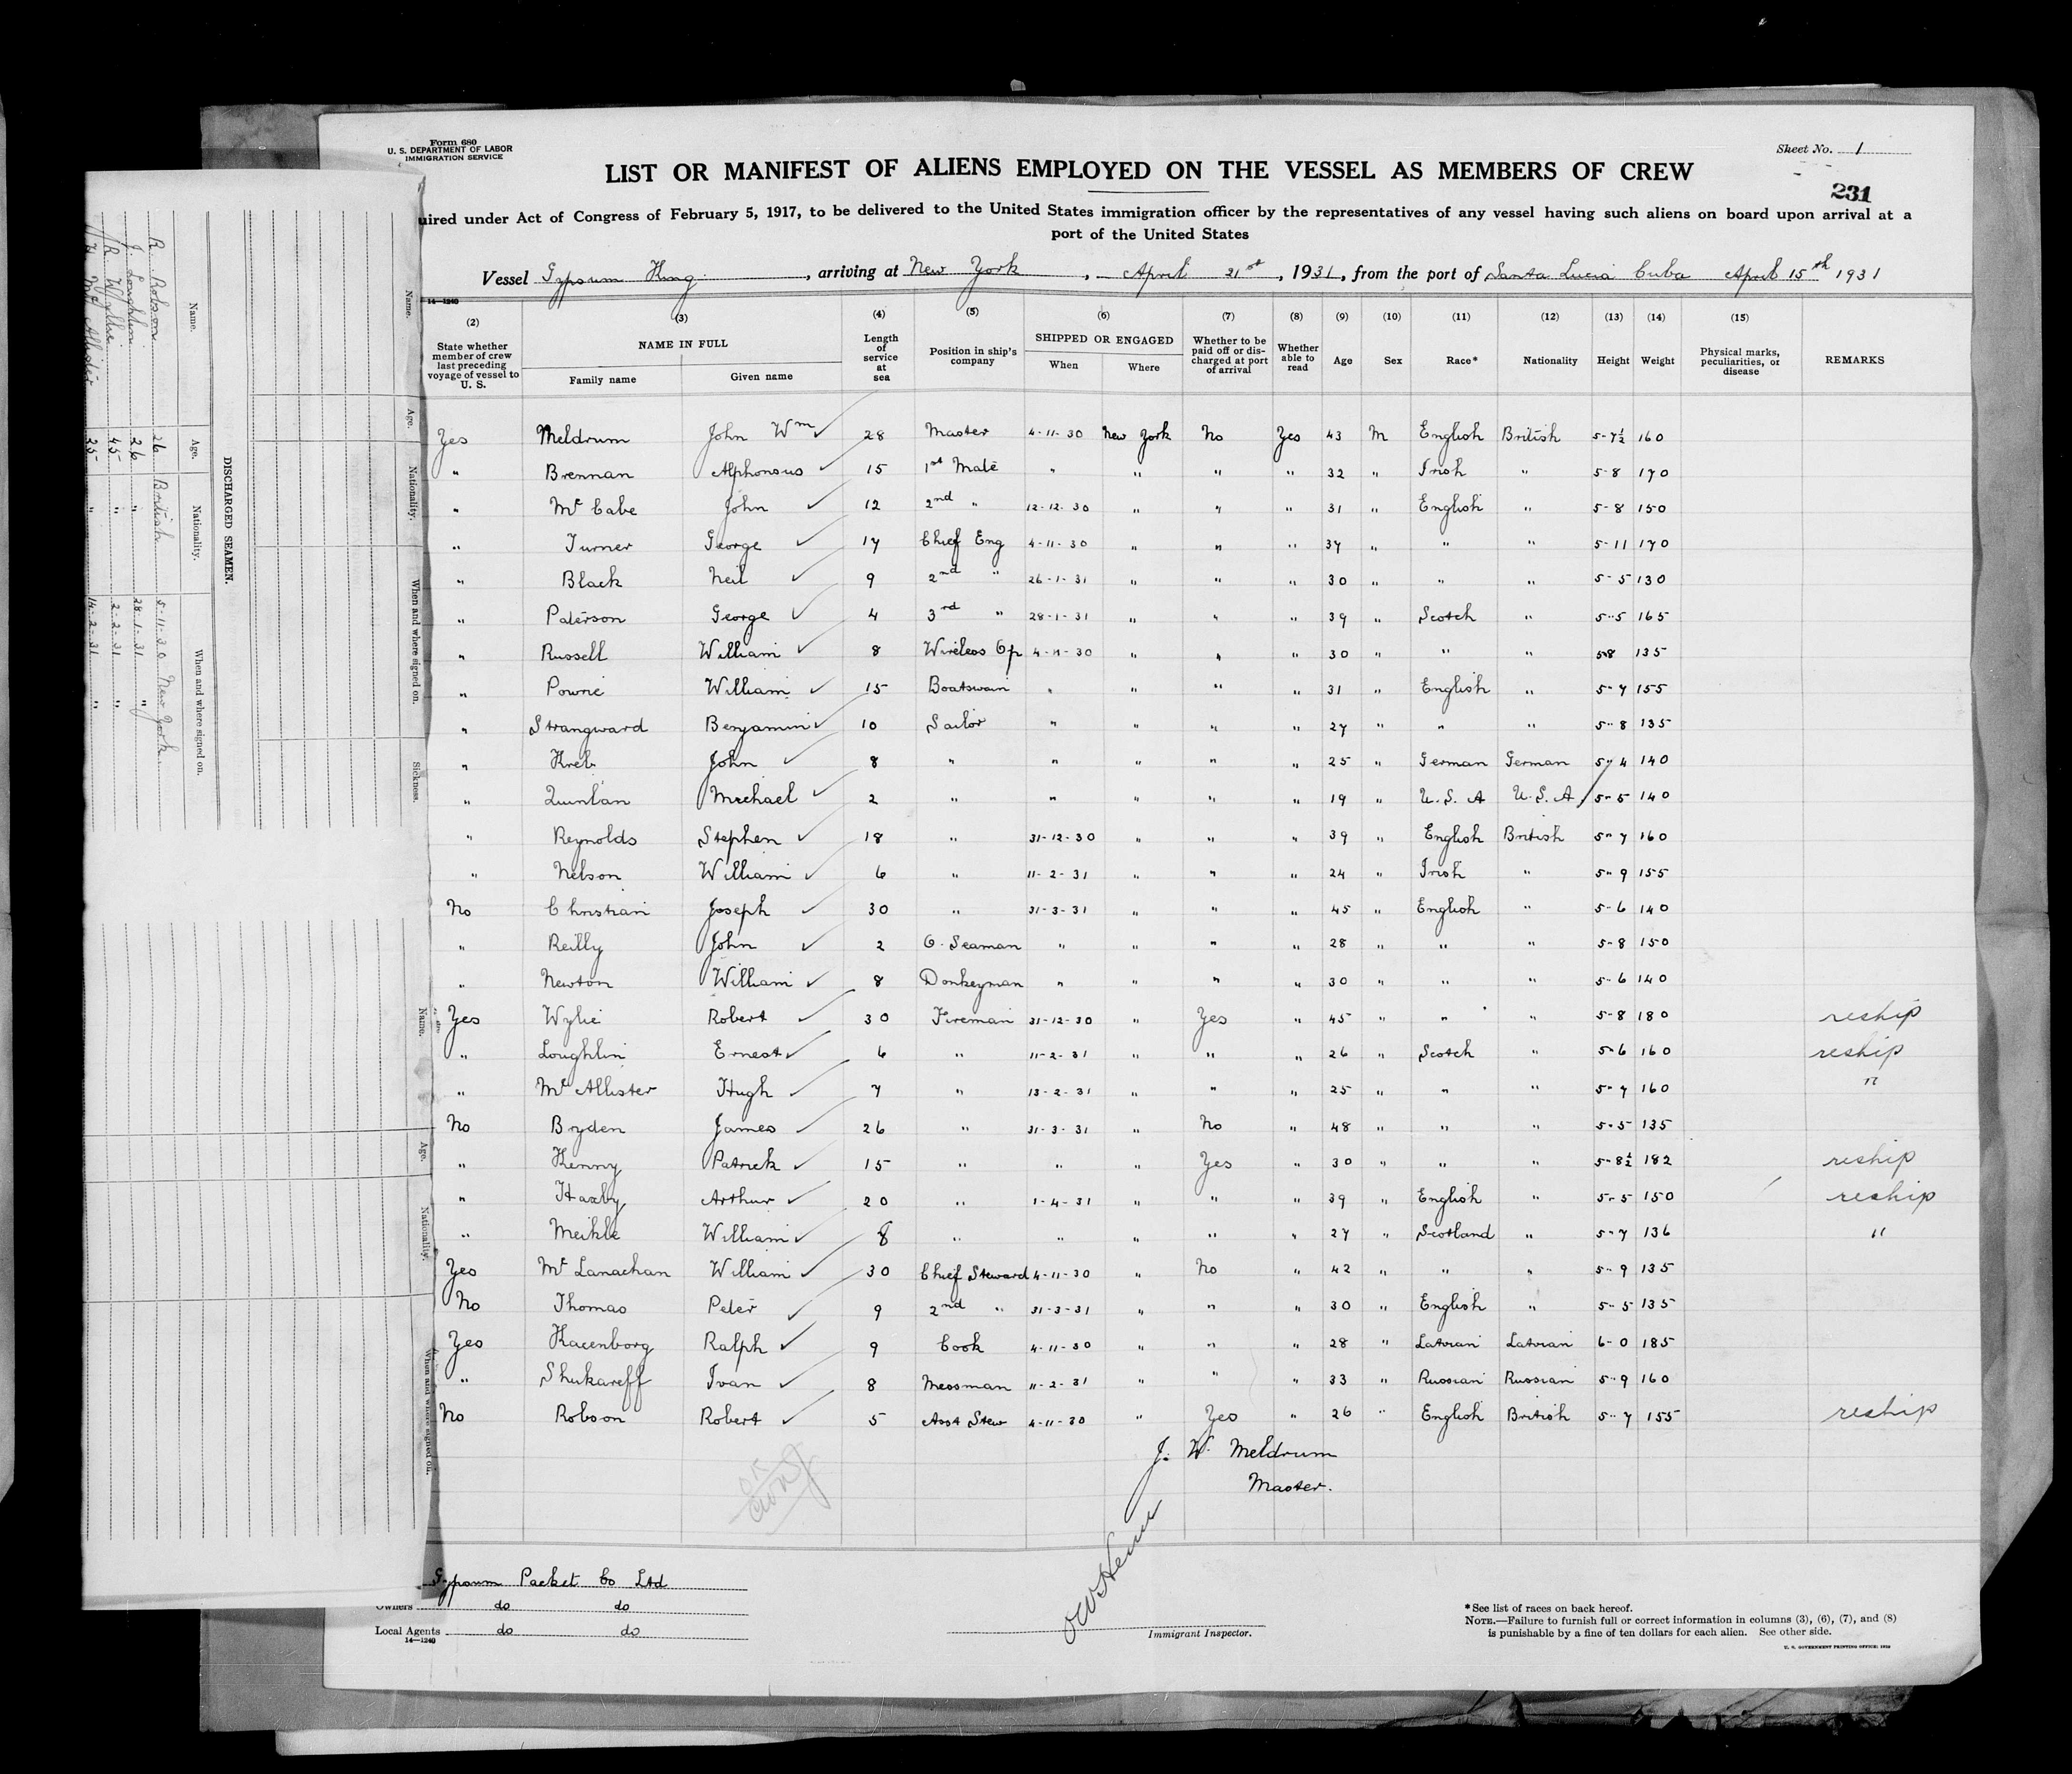 Form 680
U. S. DEPARTMENT OF LABOR
IMMIGRATION SERVICE
Sheet No. 1
LIST OR MANIFEST OF ALIENS EMPLOYED ON THE VESSEL AS MEMBERS OF CREW
231
uired under Act of Congress of February 5, 1917, to be delivered to the United States immigration officer by the representatives of any vessel having such aliens on board upon arrival at a
port of the United States
Vessel Gypsum King, arriving at New York, April 21st, 1931, from the port of Santa Lucia Cuba April 15th 1931
14—1240
(2) (3) (4) (5) (6) (7) (8) (9) (10) (11) (12) (13) (14) (15)
State whether member of crew last preceding voyage of vessel to U. S.
NAME IN FULL
Family name Given name
Length of service at sea
Position in ship's company
SHIPPED OR ENGAGED
When Where
Whether to be paid off or discharged at port of arrival
Whether able to read
Age Sex Race* Nationality Height Weight
Physical marks, peculiarities, or disease
REMARKS
Yes Meldrum John Wm 28 Master 4-11-30 New York No Yes 43 M English British 5-7½ 160
" Brennan Alphonsus 15 1st Mate " " " " 32 " Irish " 5-8 170
" Mc Cabe John 12 2nd " 12-12-30 " " " 31 " English " 5-8 150
" Turner George 17 Chief Eng 4-11-30 " " " 37 " " " 5-11 170
" Black Neil 9 2nd " 26-1-31 " " " 30 " " " 5-5 130
" Paterson George 4 3rd " 28-1-31 " " " 39 " Scotch " 5-5 165
" Russell William 8 Wireless Op 4-11-30 " " " 30 " " " 5-8 135
" Powrie William 15 Boatswain " " " " 31 " English " 5-7 155
" Strangward Benjamin 10 Sailor " " " " 27 " " " 5-8 135
" Kreb John 8 " " " " " 25 " German German 5-4 140
" Quinlan Michael 2 " " " " " 19 " U.S.A U.S.A 5-5 140
" Reynolds Stephen 18 " 31-12-30 " " " 39 " English British 5-7 160
" Nelson William 6 " 11-2-31 " " " 24 " Irish " 5-9 155
No Christian Joseph 30 " 31-3-31 " " " 45 " English " 5-6 140
" Reilly John 2 O. Seaman " " " " 28 " " " 5-8 150
" Newton William 8 Donkeyman " " " " 30 " " " 5-6 140
Yes Wylie Robert 30 Fireman 31-12-30 " Yes " 45 " " " 5-8 180 reship
" Loughlin Ernest 6 " 11-2-31 " " " 26 " Scotch " 5-6 160 reship
" Mc Allister Hugh 7 " 13-2-31 " " " 25 " " " 5-7 160 "
No Bryden James 26 " 31-3-31 " No " 48 " " " 5-5 135
" Kenny Patrick 15 " " " Yes " 30 " " " 5-8½ 182 reship
" Haxby Arthur 20 " 1-4-31 " " " 39 " English " 5-5 150 reship
" Meikle William 8 " " " " " 27 " Scotland " 5-7 136 "
Yes Mc Lanachan William 30 Chief Steward 4-11-30 " No " 42 " " " 5-9 135
No Thomas Peter 9 2nd " 31-3-31 " " " 30 " English " 5-5 135
Yes Kacenborg Ralph 9 Cook 4-11-30 " " " 28 " Latvian Latvian 6-0 185
" Shukareff Ivan 8 Messman 11-2-31 " " " 33 " Russian Russian 5-9 160
No Robson Robert 5 Asst Stew 4-11-30 " Yes " 26 " English British 5-7 155 reship
J. W. Meldrum
Master.
Gypsum Packet Co Ltd
Owners do do
Local Agents do do
14—1240
Immigrant Inspector.
*See list of races on back hereof.
NOTE.—Failure to furnish full or correct information in columns (3), (6), (7), and (8)
is punishable by a fine of ten dollars for each alien. See other side.
U. S. GOVERNMENT PRINTING OFFICE: 1929
DISCHARGED SEAMEN.
Name. Age. Nationality. When and where signed on.
R. Robson 26 British 5-11-30 New York
J. Loughlin 26 " 28-1-31 "
R Wyllie 45 " 2-2-31 "
H Mc Allister 25 " 14-2-31 "
Name. Age. Nationality. When and where signed on. Sickness.
Name. Age. Nationality. When and where signed on.